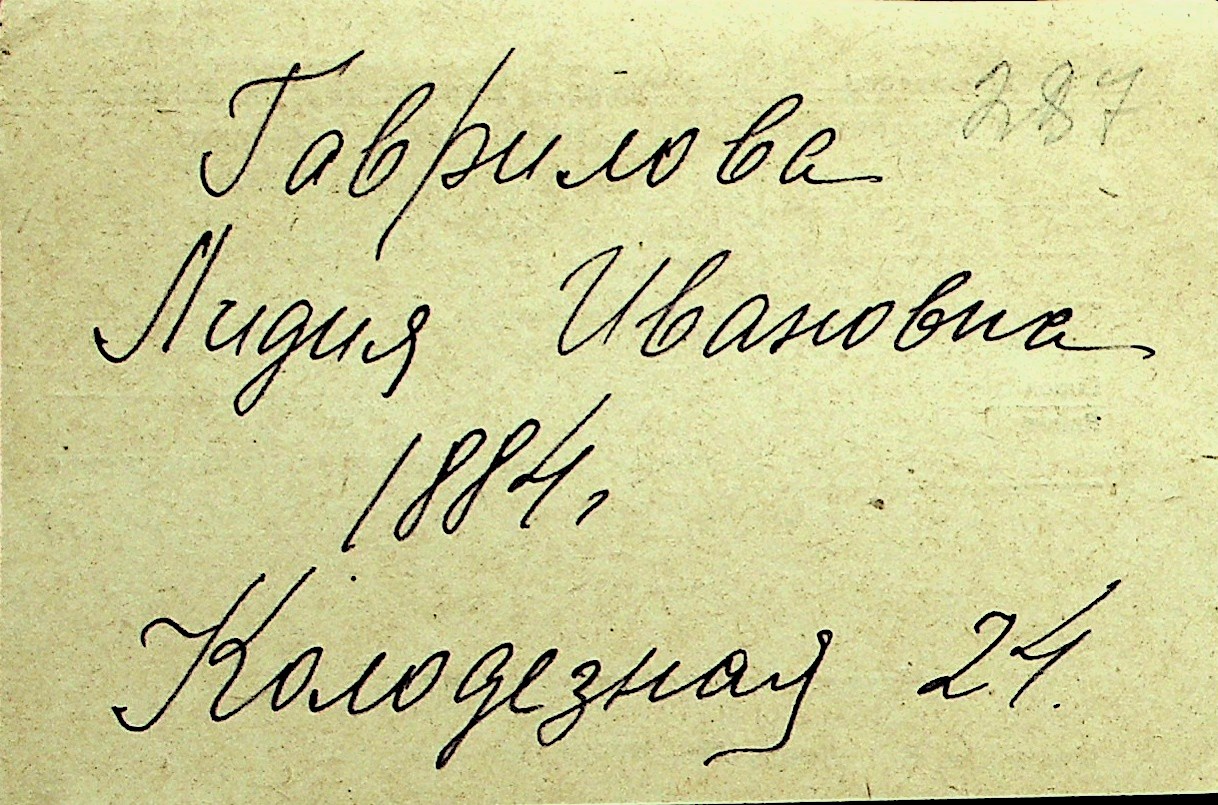 287
Гаврилова
Лидия Ивановна
1884,
Колодезная 24.